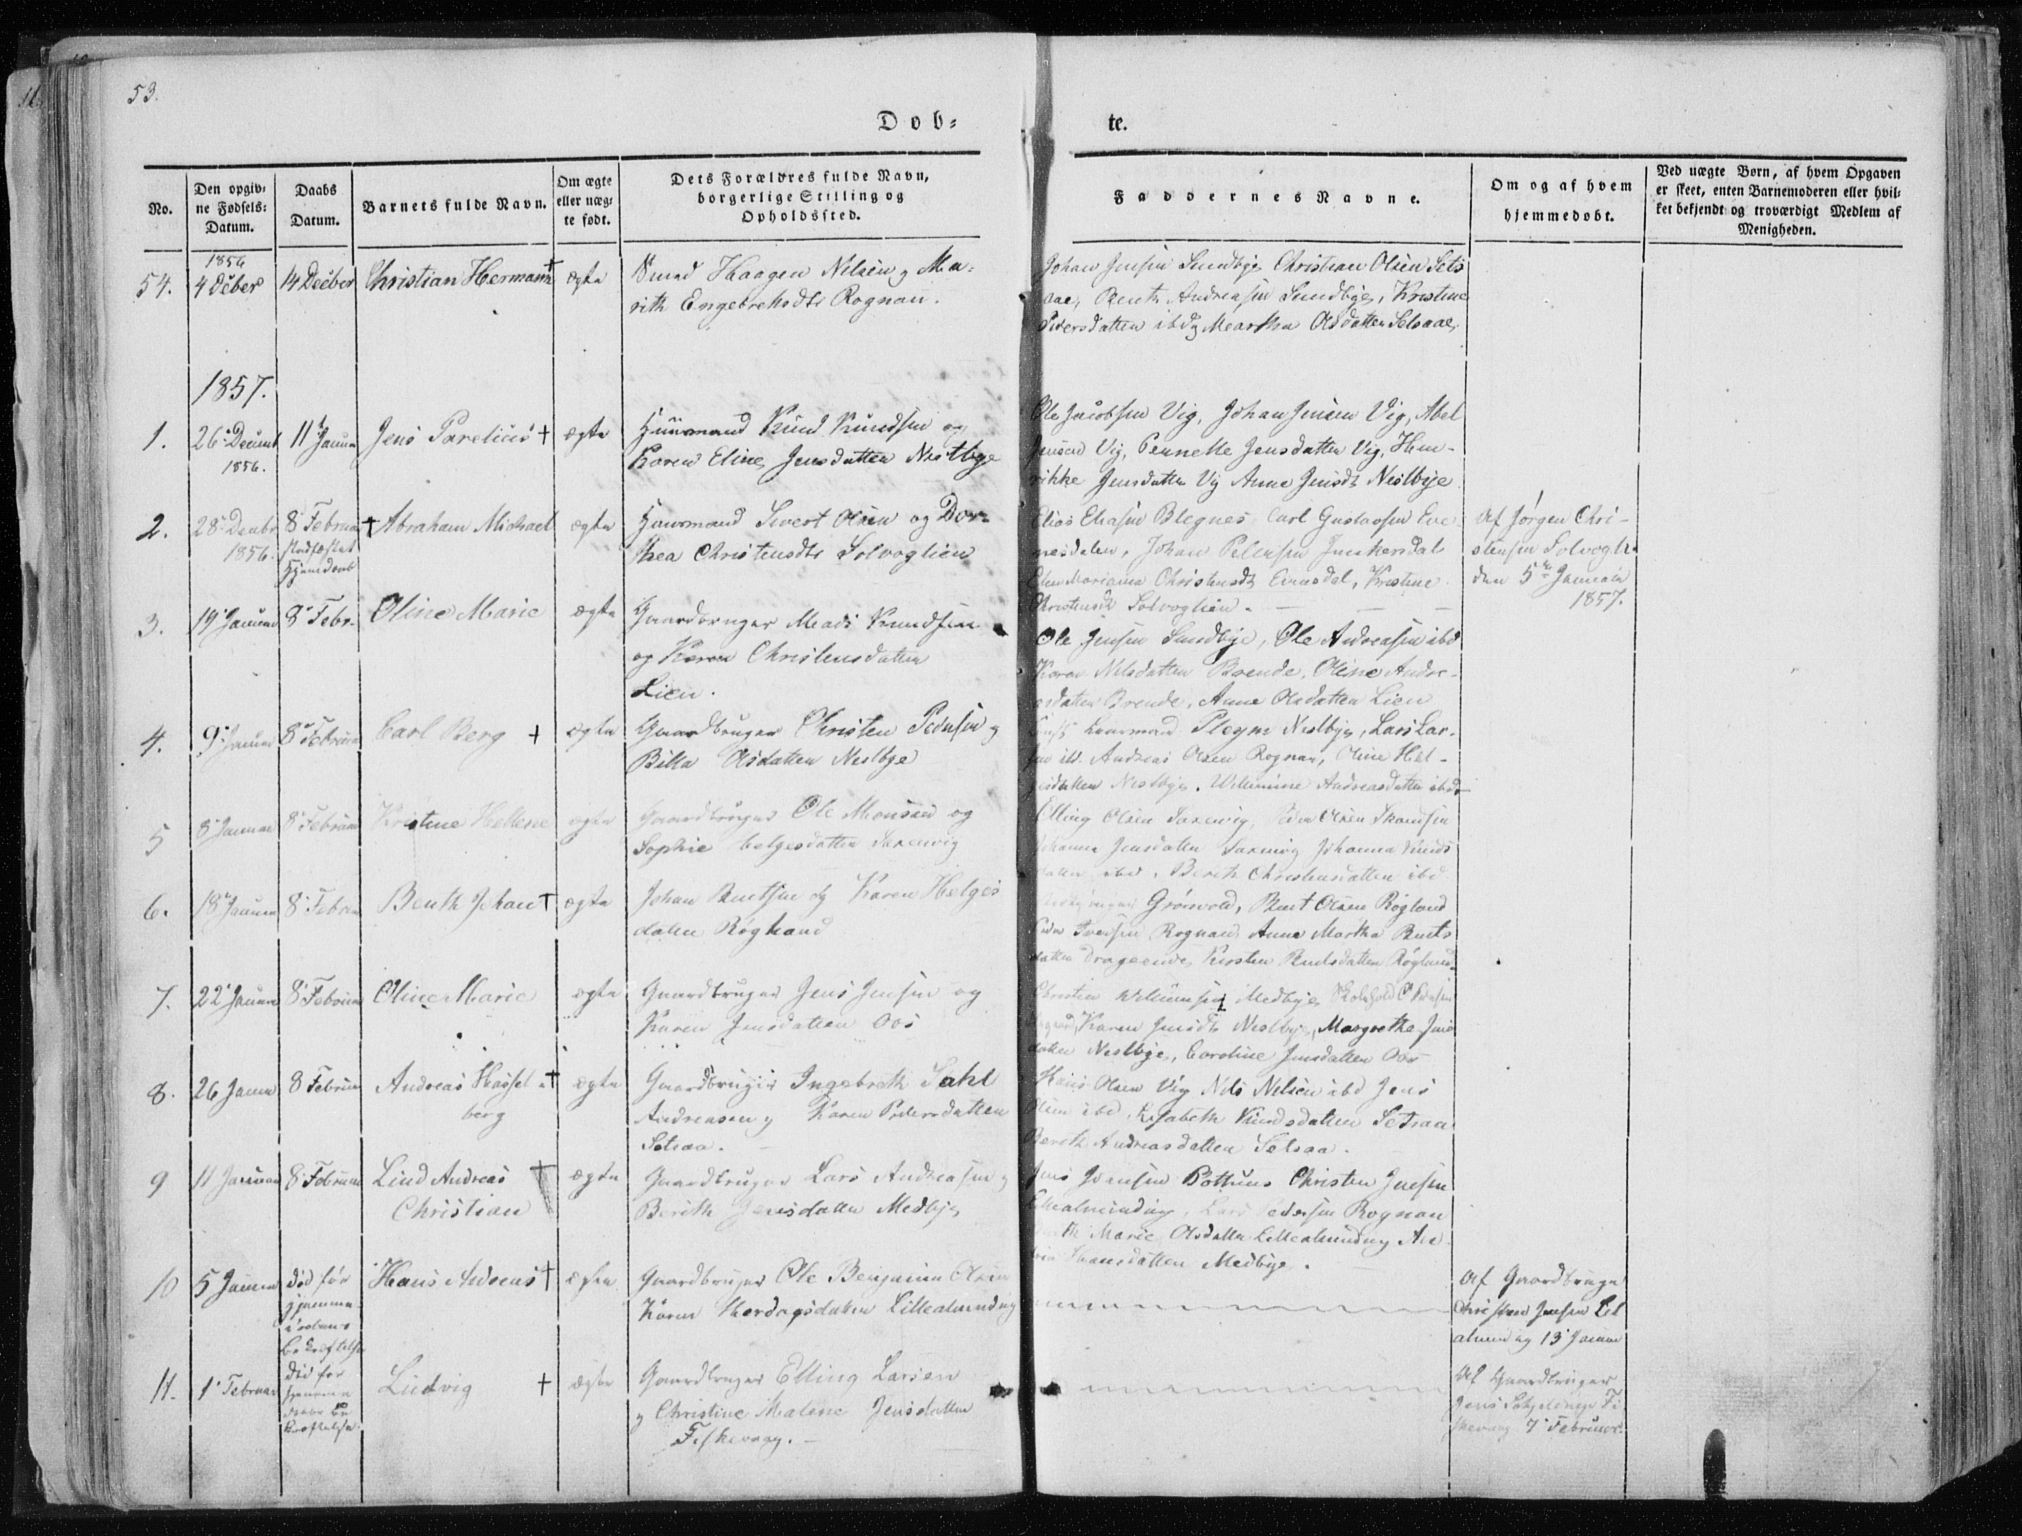 53.
Døb-
te.
No.
Den opgiv-
ne Fødsels-
Datum.
Daabs
Datum.
Barnets fulde Navn.
Om ægte
eller uæg-
te født.
Dets Forældres fulde Navn,
borgerlige Stilling og
Opholdssted.
Faddernes Navne.
Om og af hvem
hjemmedøbt.
Ved uægte Børn, af hvem Opgaven
er skeet, enten Barnemoderen eller hvil-
ket bekjendt og troværdigt Medlem af
Menigheden.
1856
54.
4 Décber
14 Decber
Christian Hermann †
ægte
Haagen Nilsen og Ma-
rith Engebrehsdtr Rognan.
Johan Jensen Sundbye Christian Olsen Sets
aae, Benth Andreasen Sundbye, Kristine
Pedersdatten ibd og Meartha Olsdatten Setsaae
1857.
1.
26 Decemb
1856.
11 Januar
Jens Parelius †
ægte
Huusmand Knud Knudsen og
Karen Eline Jensdatten Nestbye
Ole Jacobsen Vig, Johan Jensen Vig, Abel
Jensen Vig, Pernelle Jensdatten Vig, Hen-
rikke Jensdatten Vig Anne Jensdt Nestbye
2.
28 Decbr
1856.
8 Februar
stadfæstet
Hjemdaab
† Abraham Michael
ægte
Huusmand Sivert Olsen og Dor-
thea Christensdtr Solvoglien
Elias Eliasen Blegnes, Carl Gustavsen Eve
nesdalen, Johan Petersen Junkersdal
Elen Mariana Christensdt Evensdal, Kristine
Christensdt Solvoglien.
Af Jørgen Chri-
stensen Solvogli
den 5te Januar
1857.
3.
19 Januar
8 Febr.
Oline Marie
ægte
Gaardbruger Mads Knudsen
og Karen Christensdatten
Lien.
Ole Jensen Sundbye, Ole Andreasen ibd
Karen Nilsdatten Brende, Oline Andre-
asdatten Brende, Anne Olsdatten Lien
4.
9 Januar
8 Februar
Carl Berg †
ægte
Gaardbruger Christen Pedersen og
Billa Olsdatten Nestbye
Plegm Nestbye, Lars Lar-
sen ibd. Andreas Olsen Rognan, Oline Hel-
gesdatten Nestbye. Willumine Andreasdatten ibd
5
8 Januar
8 Februar
Kristine Hellene
ægte
Gaardbruger Ole Monsen og
Sophie Helgesdatten Saxenvig
Elling Olsen Saxenvig, Peder Olsen
Johanna Jensdatten Saxenvig Johanna Knuds
datten ibd. Berith Christensdatten ibd
6.
18 Januar
8 Februar
Benth Johan †
ægte
Johan Bentsen og Karen Helges
daten Røgland
Grønvold, Bent Olsen Røgland
Peder Iversen Rognan, Anne Martha Bents
datten Drageeide, Kirsten Bentsdatten Røgland
7.
22 Januar
8 Februar
Oline Marie
ægte
Gaardbruger Jens Jensen og
Karen Jensdatten Oos
Christen Willumsen Medbye
Karen Jensdt Nestbye, Margrethe Jens
datten Nestbye, Caroline Jensdatten Oos
8.
26 Janur
8 Februar
Andreas Hassel
berg †
ægte
Gaardbruger Ingebreth Sahl
Andreasen og Karen Pedersdatten
Setsaa.
Hans Olsen Vig Nils Nilsen ibd Jens
Olsen ibd, Elisabeth Knudsdatten Setsaa
Berith Andreasdatten Setsaa.
9
11 Januar
8 Februar
Lind Andreas
Christian †
ægte
Gaardbruger Lars Andreasen og
Berith Jensdatten Medbye
Jens Jensen Bottnes Christen Jensen
Lillealminding, Lars Pedersen Rognan
Marie Olsdatten Lillealminding An-
Hansdatten Medbye.
10
5 Januar
død før
Hjemme-
daabens
Bekræftelse
Hans Andreas †
ægte
Gaardbruger Ole Benjamin Olsen
Karen Hordagsdatten Lillealminding
Af Gaardbruger
Christen Jensen Lil
alminding 13 Januar
11.
1 Februar
Død før
Hjemme
daabs Be
kræftelse.
Ludvig †
ægte
Gaardbruger Elling Larsen
og Christine Malene Jensdatten
Fiskevaag.
Af Gaardbruger
Jens Fi
skevaag 7 Februar.